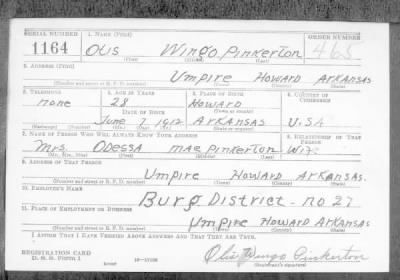 SERIAL NUMBER 1. NAME (Print) ORDER NUMBER
1164 Otis Wingo Pinkerton 465
(First) (Middle) (Last)
2. ADDRESS (Print)
Umpire Howard Arkansas
(Number and street or R. F. D. number) (Town) (County) (State)
3. TELEPHONE 4. AGE IN YEARS 5. PLACE OF BIRTH 6. COUNTRY OF CITIZENSHIP
none 28 Howard
DATE OF BIRTH (Town or county)
June 7 1912 Arkansas U.S.A
(Exchange) (Number) (Mo.) (Day) (Yr.) (State or country)
7. NAME OF PERSON WHO WILL ALWAYS KNOW YOUR ADDRESS 8. RELATIONSHIP OF THAT PERSON
Mrs. Odessa mae Pinkerton Wife
(Mr., Mrs., Miss) (First) (Middle) (Last)
9. ADDRESS OF THAT PERSON
Umpire Howard Arkansas.
(Number and street or R. F. D. number) (Town) (County) (State)
10. EMPLOYER'S NAME
Burg District - no 27
11. PLACE OF EMPLOYMENT OR BUSINESS
Umpire Howard Arkansas
(Number and street or R. F. D. number) (Town) (County) (State)
I AFFIRM THAT I HAVE VERIFIED ABOVE ANSWERS AND THAT THEY ARE TRUE.
REGISTRATION CARD
D. S. S. FORM 1 Otis Wingo Pinkerton
(Registrant's signature)